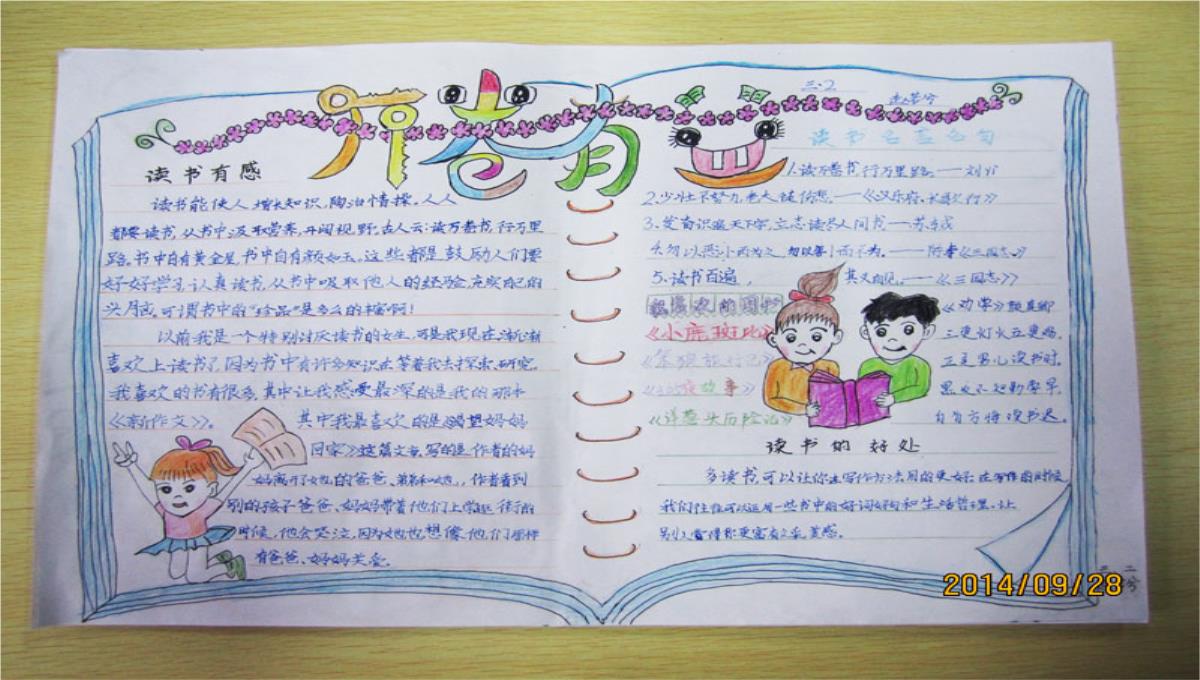 开卷有益
三.2
读书有感
读书能使人增长知识,陶冶情操。人人
都要读书,从书中汲取营养,开阔视野,古人云:读万卷书,行万里
路。书中自有黄金屋,书中自有颜如玉。这些都是鼓励人们要
好好学习,认真读书,从书中吸取他人的经验充实自己的
头脑,可谓书中的“珍品”是多么的丰富啊!
以前我是一个特别讨厌读书的女生,可是我现在渐渐
喜欢上读书了,因为书中有许多知识在等着我去探索、研究。
我喜欢的书有很多,其中让我感受最深的是我的那本
《新作文》。其中我最喜欢的是《渴望妈妈
回家》这篇文章,写的是作者的妈
妈离开了她的爸爸、弟弟和她,作者看到
别的孩子爸爸、妈妈带着他们上学
时候,他会哭泣,因为她也想像他们那样
有爸爸、妈妈关爱。
读书名言名句
1.读万卷书,行万里路。——刘
2.少壮不努力,老大徒伤悲。——《汉乐府·长歌行》
3.发奋识遍天下字,立志读尽人间书——苏轼
4.勿以恶小而为之,勿以善小而不为。——陈寿《三国志》
5.读书百遍,其义自见。——《三国志》
《小鹿斑比》
《笨狼旅行记》
故事》
《洋葱头历险记》
《劝学》颜真卿
三更灯火五更鸡,
正是男儿读书时,
黑发不知勤学早,
白首方悔读书迟。
读书的好处
多读书,可以让你写作方法用的更好:在写作的时候
我们往往可以运用一些书中的好词好句和生活哲理。让
别人觉得你更富有文采,美感。
三 二
2014/09/28